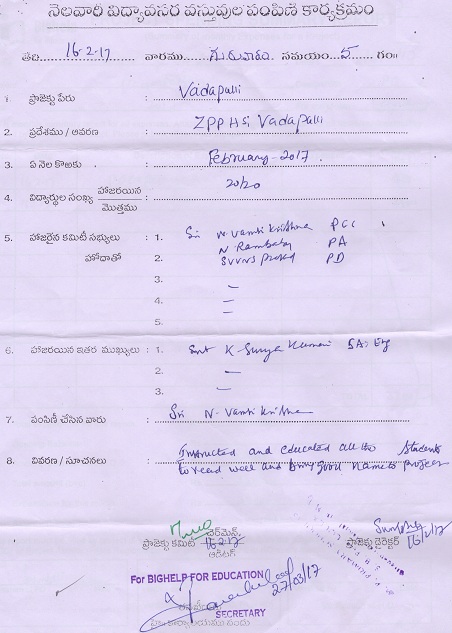 నెలవారీ విద్యావసర వస్తువుల పంపిణీ కార్యక్రమం
తేది 16-2-17 వారము గురువారం సమయం 5 గం॥
1. ప్రాజెక్టు పేరు : Vadapalli
2. ప్రదేశము / ఆవరణ : ZPPHS, Vadapalli
3. ఏ నెల కొఱకు : February-2017
4. విద్యార్థుల సంఖ్య హాజరయిన / మొత్తము : 20/20
5. హాజరైన కమిటీ సభ్యులు : 1. Sri N. Vamsi Krishna PCC
N Rambabu PA
హోదాతో 2. SVVNS Prasad PD
3. –
4. –
5.
6. హాజరయిన ఇతర ముఖ్యులు : 1. Smt K. Surya Kumari SA: Eng
2. –
3. –
7. పంపిణీ చేసిన వారు : Sri N. Vamsi Krishna
8. వివరణ / సూచనలు : Instructed and educated all the students
to read well and bring good name to project
ప్రాజెక్టు కమిటీ చైర్‌మెన్ 16-2-17 ఆడిటర్
ప్రాజెక్టు డైరెక్టర్ 16/2/17
For BIGHELP FOR EDUCATION
27/03/17
SECRETARY